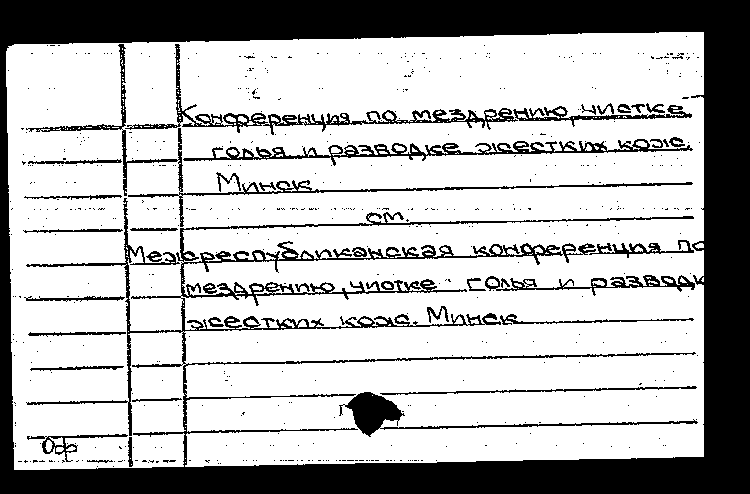 Конференция по мездрению, чистке
голья и разводке жестких кож.
Минск.
см.
Межреспубликанская конференция по
мездрению, чистке голья и разводк
жестких кож. Минск
Оф